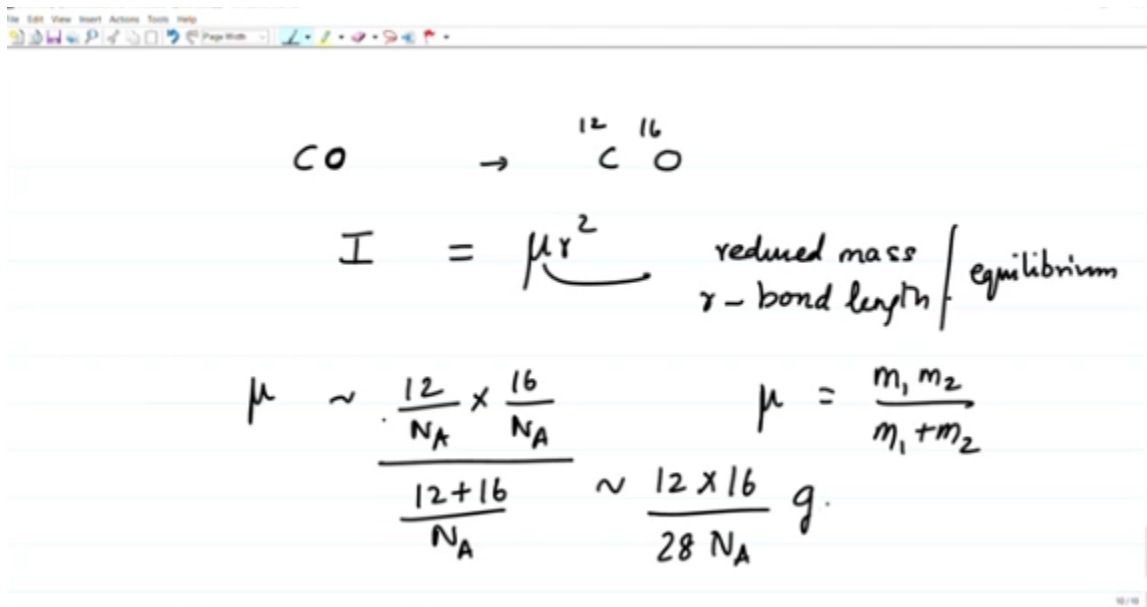 File Edit View Insert Actions Tools Help
Page Width
CO → ¹²C ¹⁶O
I = μr² reduced mass
r – bond length / equilibrium
μ ~ (12/N_A × 16/N_A) / ((12+16)/N_A) ~ (12 × 16)/(28 N_A) g.
μ = m₁ m₂ / (m₁ + m₂)
10/10